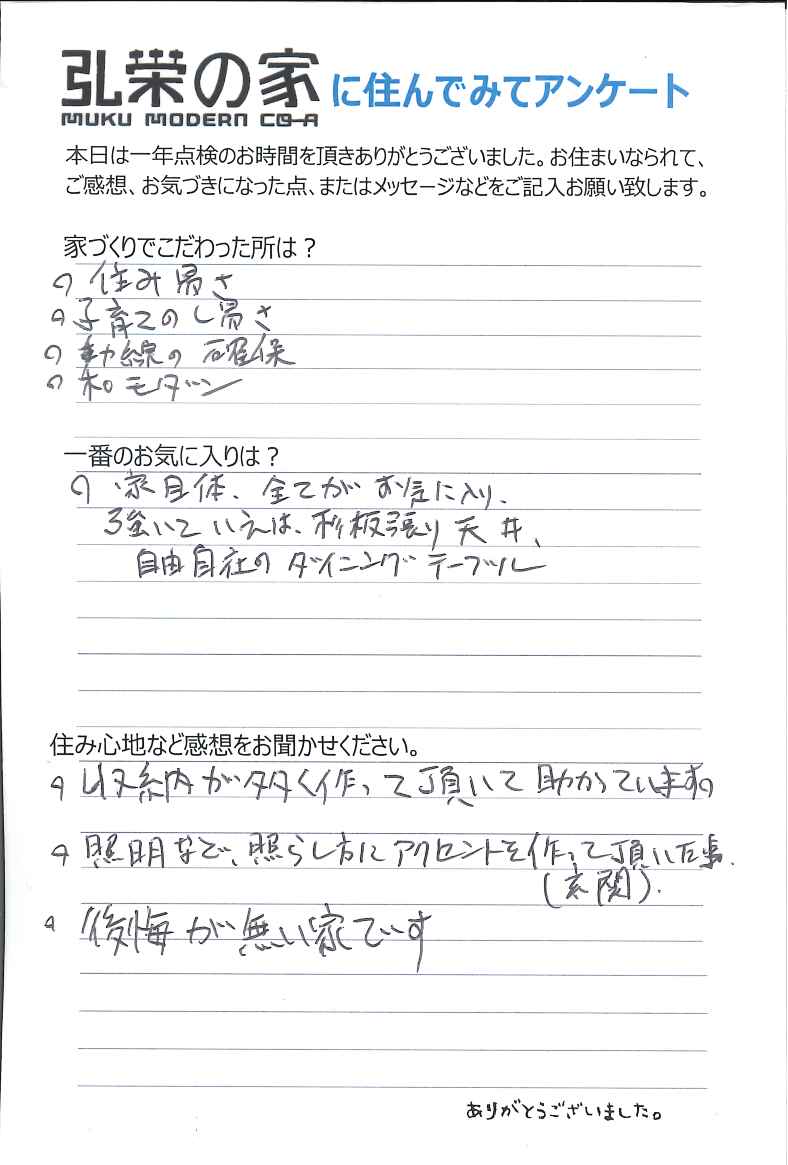 弘栄の家に住んでみてアンケート
MUKU MODERN CO-A
本日は一年点検のお時間を頂きありがとうございました。お住まいなられて、
ご感想、お気づきになった点、またはメッセージなどをご記入お願い致します。
家づくりでこだわった所は？
住み易さ
子育てのし易さ
動線の確保
和モダン
一番のお気に入りは？
家自体、全てがお気に入り、
強いていえば、杉板張り天井、
自由自社のダイニングテーブル
住み心地など感想をお聞かせください。
収納が多く作って頂いて助かっています。
照明など、照らし方にアクセントを作って頂いた事.
(玄関).
後悔が無い家です
ありがとうございました。